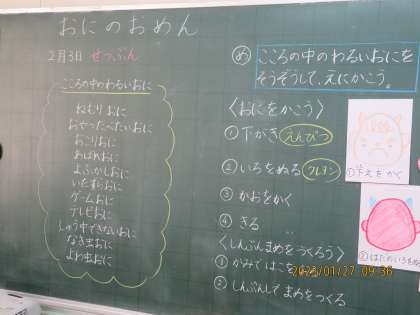 おにのおめん
2月3日 せつぶん
こころの中のわるいおに
ねむりおに
おやつたべたいおに
おこりおに
あばれおに
よふかしおに
いたずらおに
ゲームおに
テレビおに
しゅう中できないおに
なき虫おに
よわ虫おに
め
こころの中のわるいおにを
そうぞうして、えにかこう。
〈おにをかこう〉
① 下がき えんぴつ
② いろをぬる クレヨン
③ かおをかく
④ きる
〈しんぶんまめをつくろう〉
① かみではこを
② しんぶんしで まめをつくる
①下えをかく
②はだのいろをぬ
2023/01/27 09:36